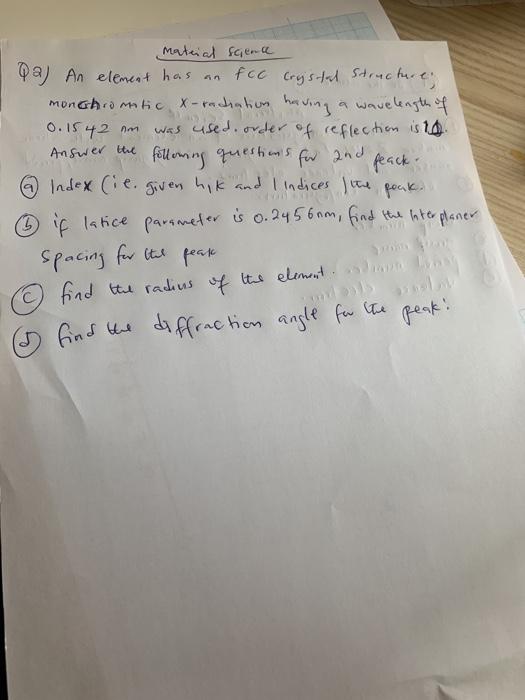 Material Science
Q2) An element has an fcc Crystal Structure;
monochromatic X-radiation having a wavelength of
0.1542 nm was used. order of reflection is 1.
Answer the following questions for 2nd peack.
(a) Index (i.e. given h, k and l Indices) the peak.
(b) if latice parameter is 0.2456nm, find the Interplaner
Spacing for the peak
(c) find the radius of the element.
(d) find the diffraction angle for the peak!